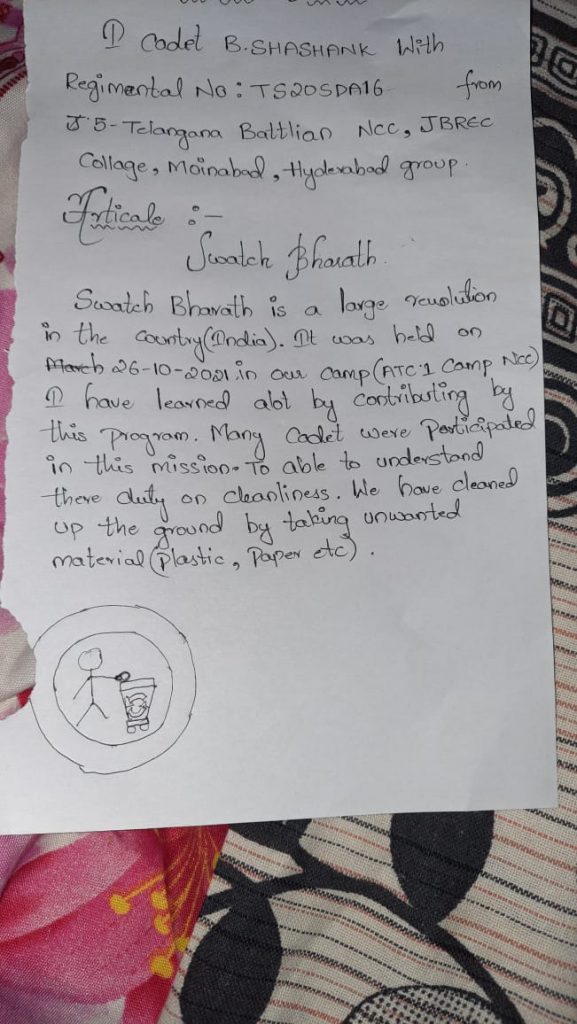 I Cadet B.SHASHANK With
Regimental No: TS20SDA16 from
5-Telangana Battlian NCC, JBREC
Collage, Moinabad, Hyderabad group.
Articale :-
Swatch Bharath.
Swatch Bharath is a large revolution
in the Country(India). It was held on
March 26-10-2021 in our camp(ATC-1 Camp NCC)
I have learned alot by contributing by
this program. Many Cadet were Participated
in this mission. To able to understand
there duty on cleanliness. We have cleaned
up the ground by taking unwanted
material (Plastic, Paper etc).